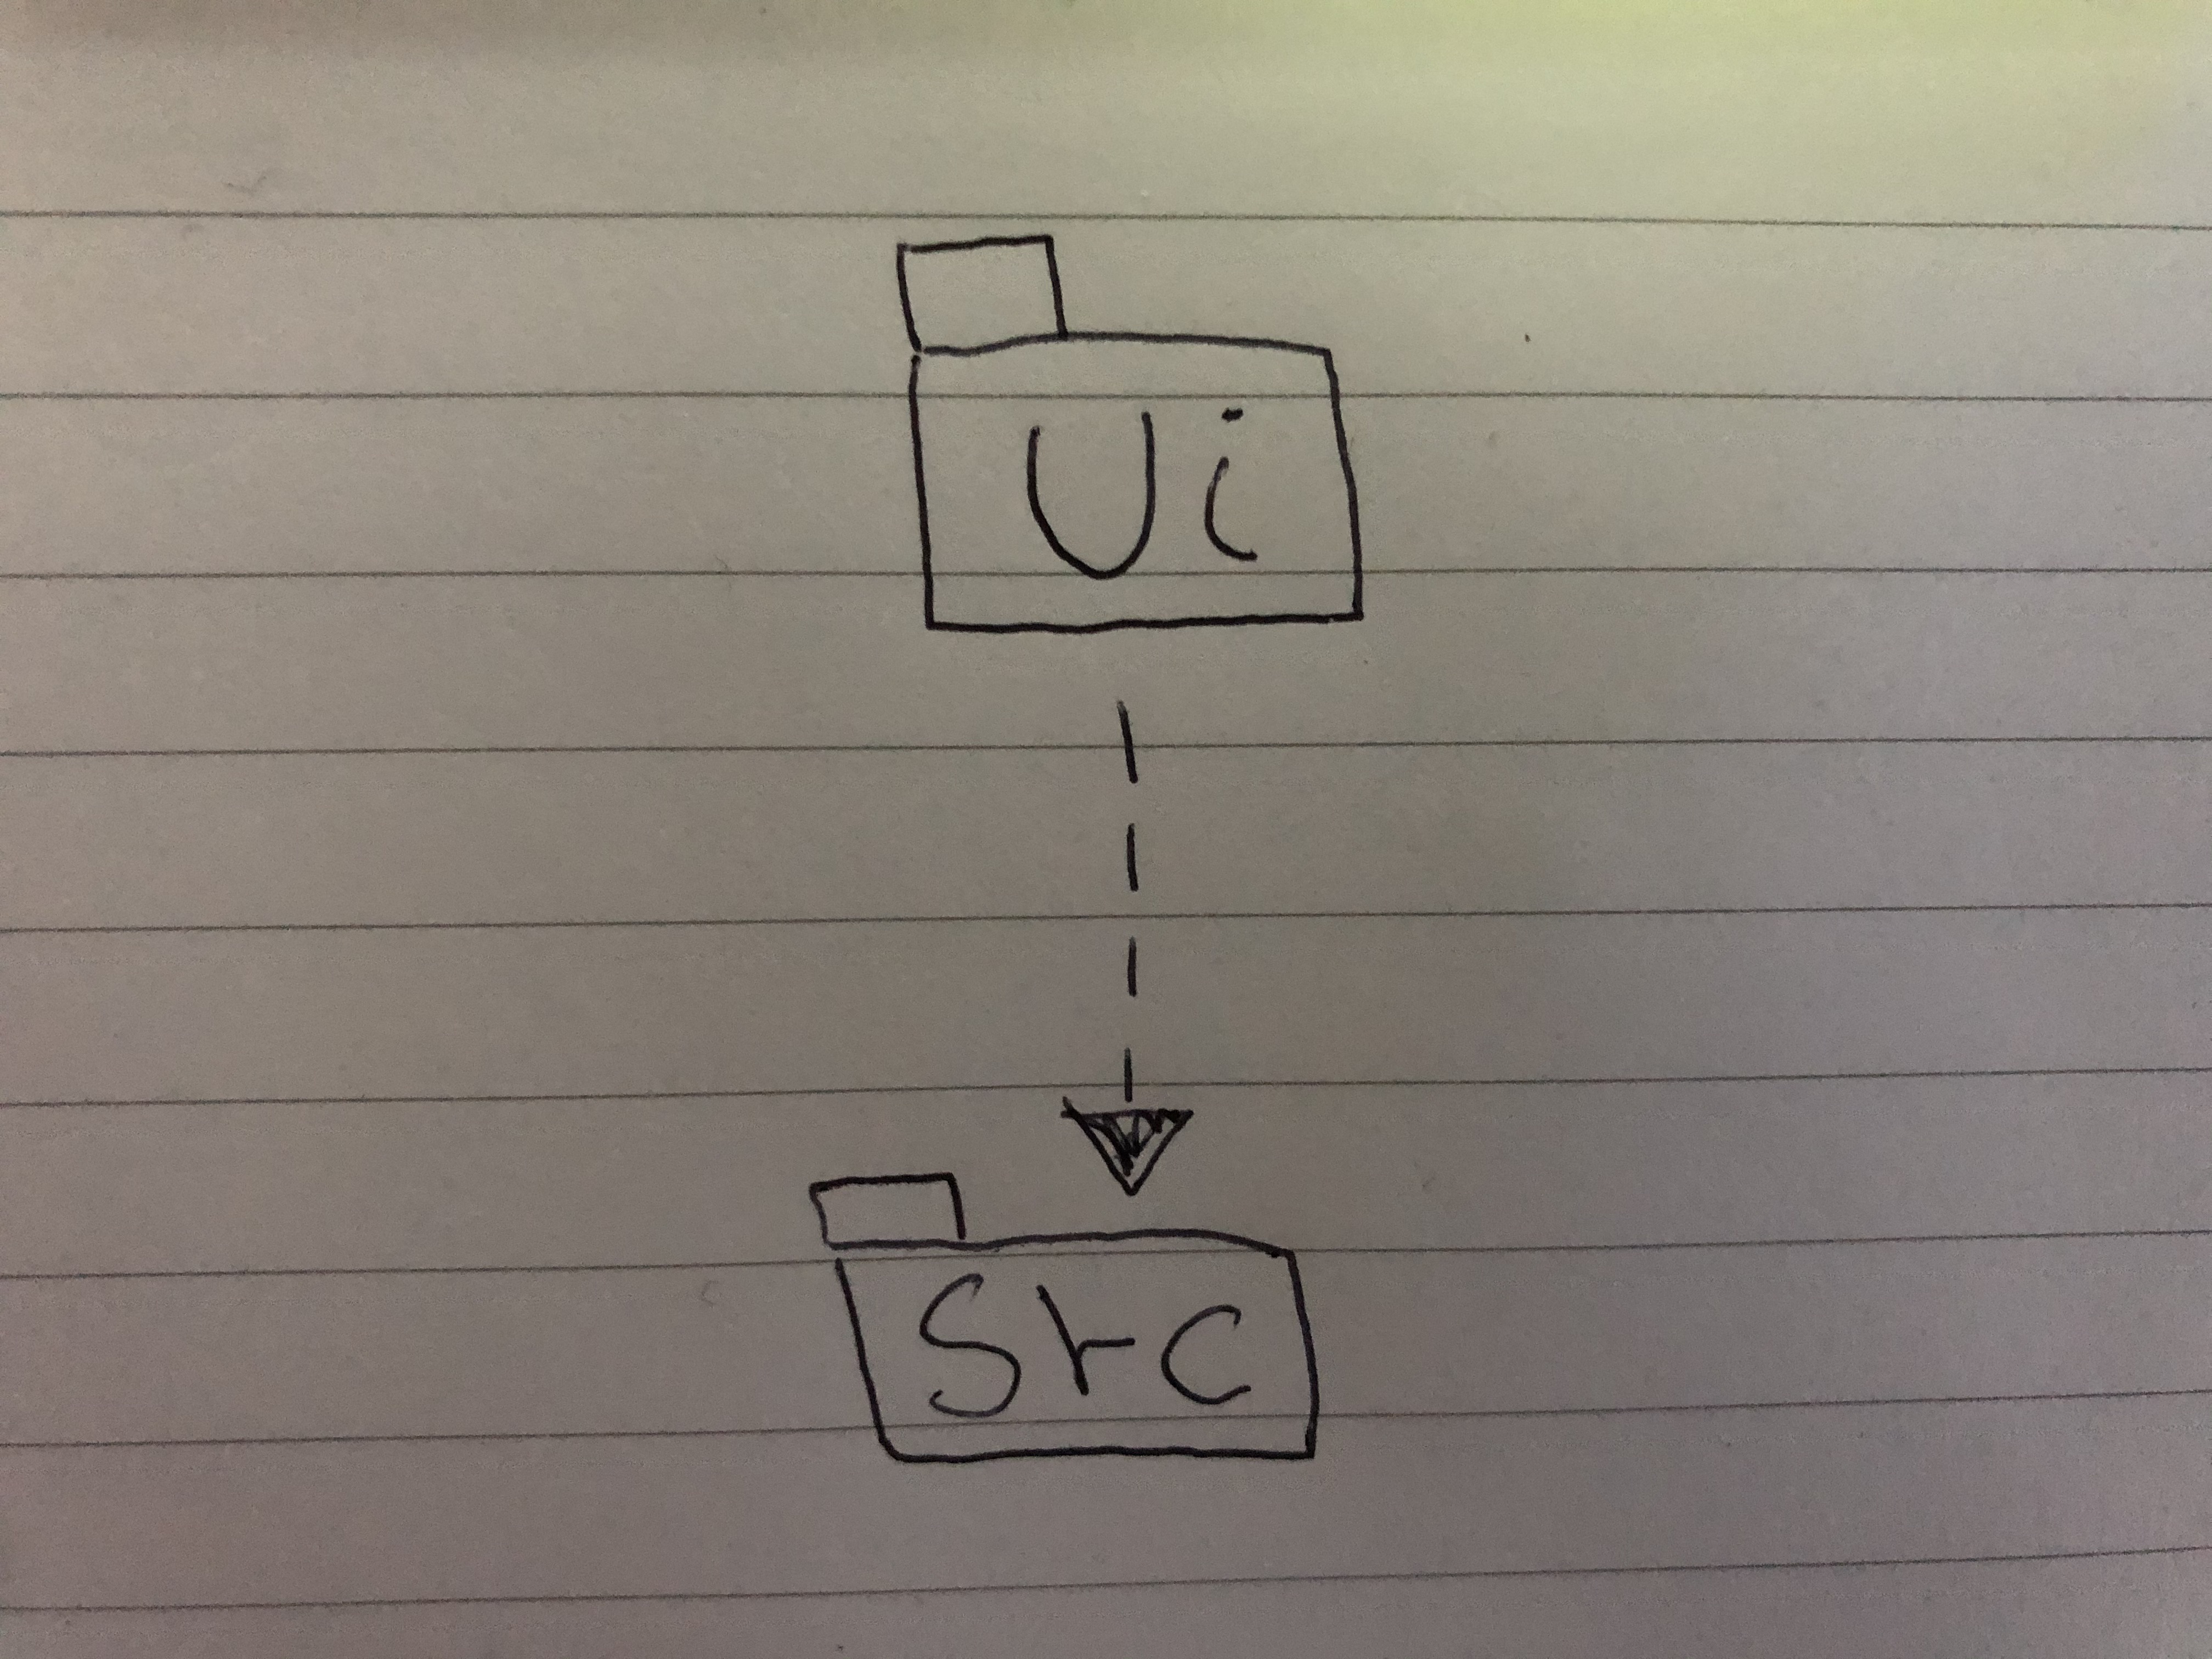 Ui
Src